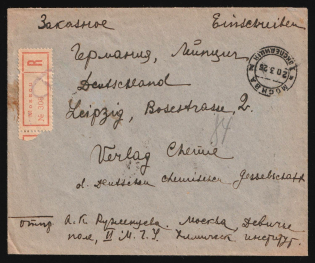 Заказное Einschreiben
Германия, Лейпциг
Deutschland
Leipzig, Bosestrasse, 2.
84
Verlag Chemie
d. Deutschen chemischen Gesellschaft
R
Москва
МОСКВА
отпр. А. К. Москва, Девичье
поле, II М.Г.У. Химическ. институт.